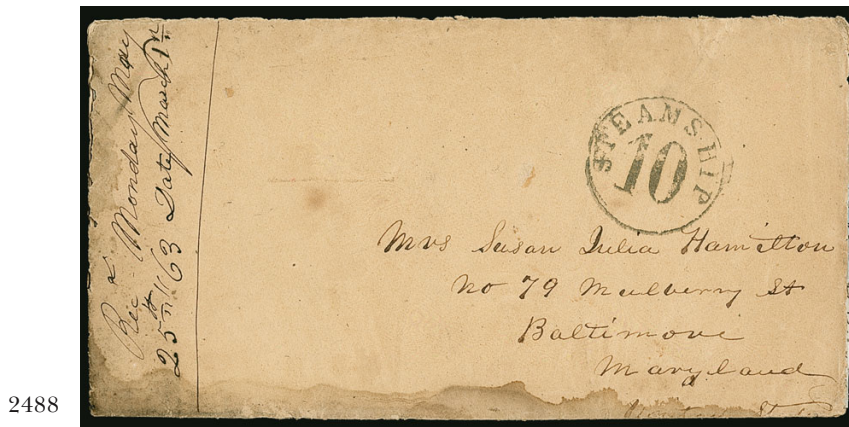 Rec d Monday May
25th /63 Date March 1st
STEAMSHIP
10
Mrs Susan Julia Hamilton
No 79 Mulberry St
Baltimore
Maryland
2488